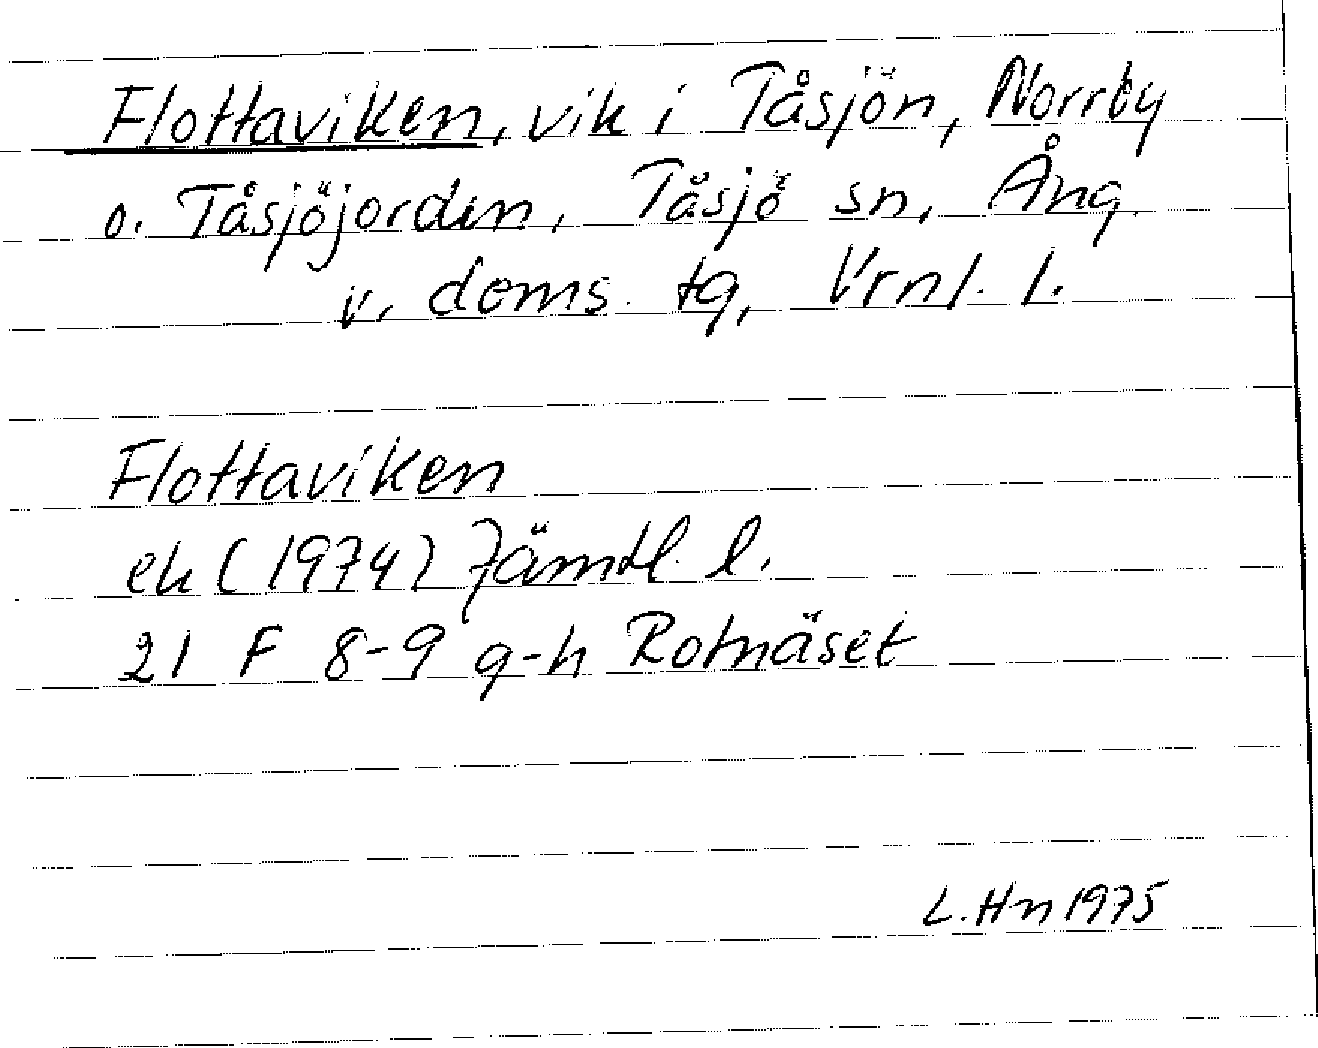 Flottaviken, vik i Tåsjön, Norrby
o. Tåsjöjorden, Tåsjö sn, Ång.
v. doms. tg, Vrnl. l.
Flottaviken
ek (1974) Jämtl. l.
21 F 8-9 g-h Rotnäset
L. Hn 1975